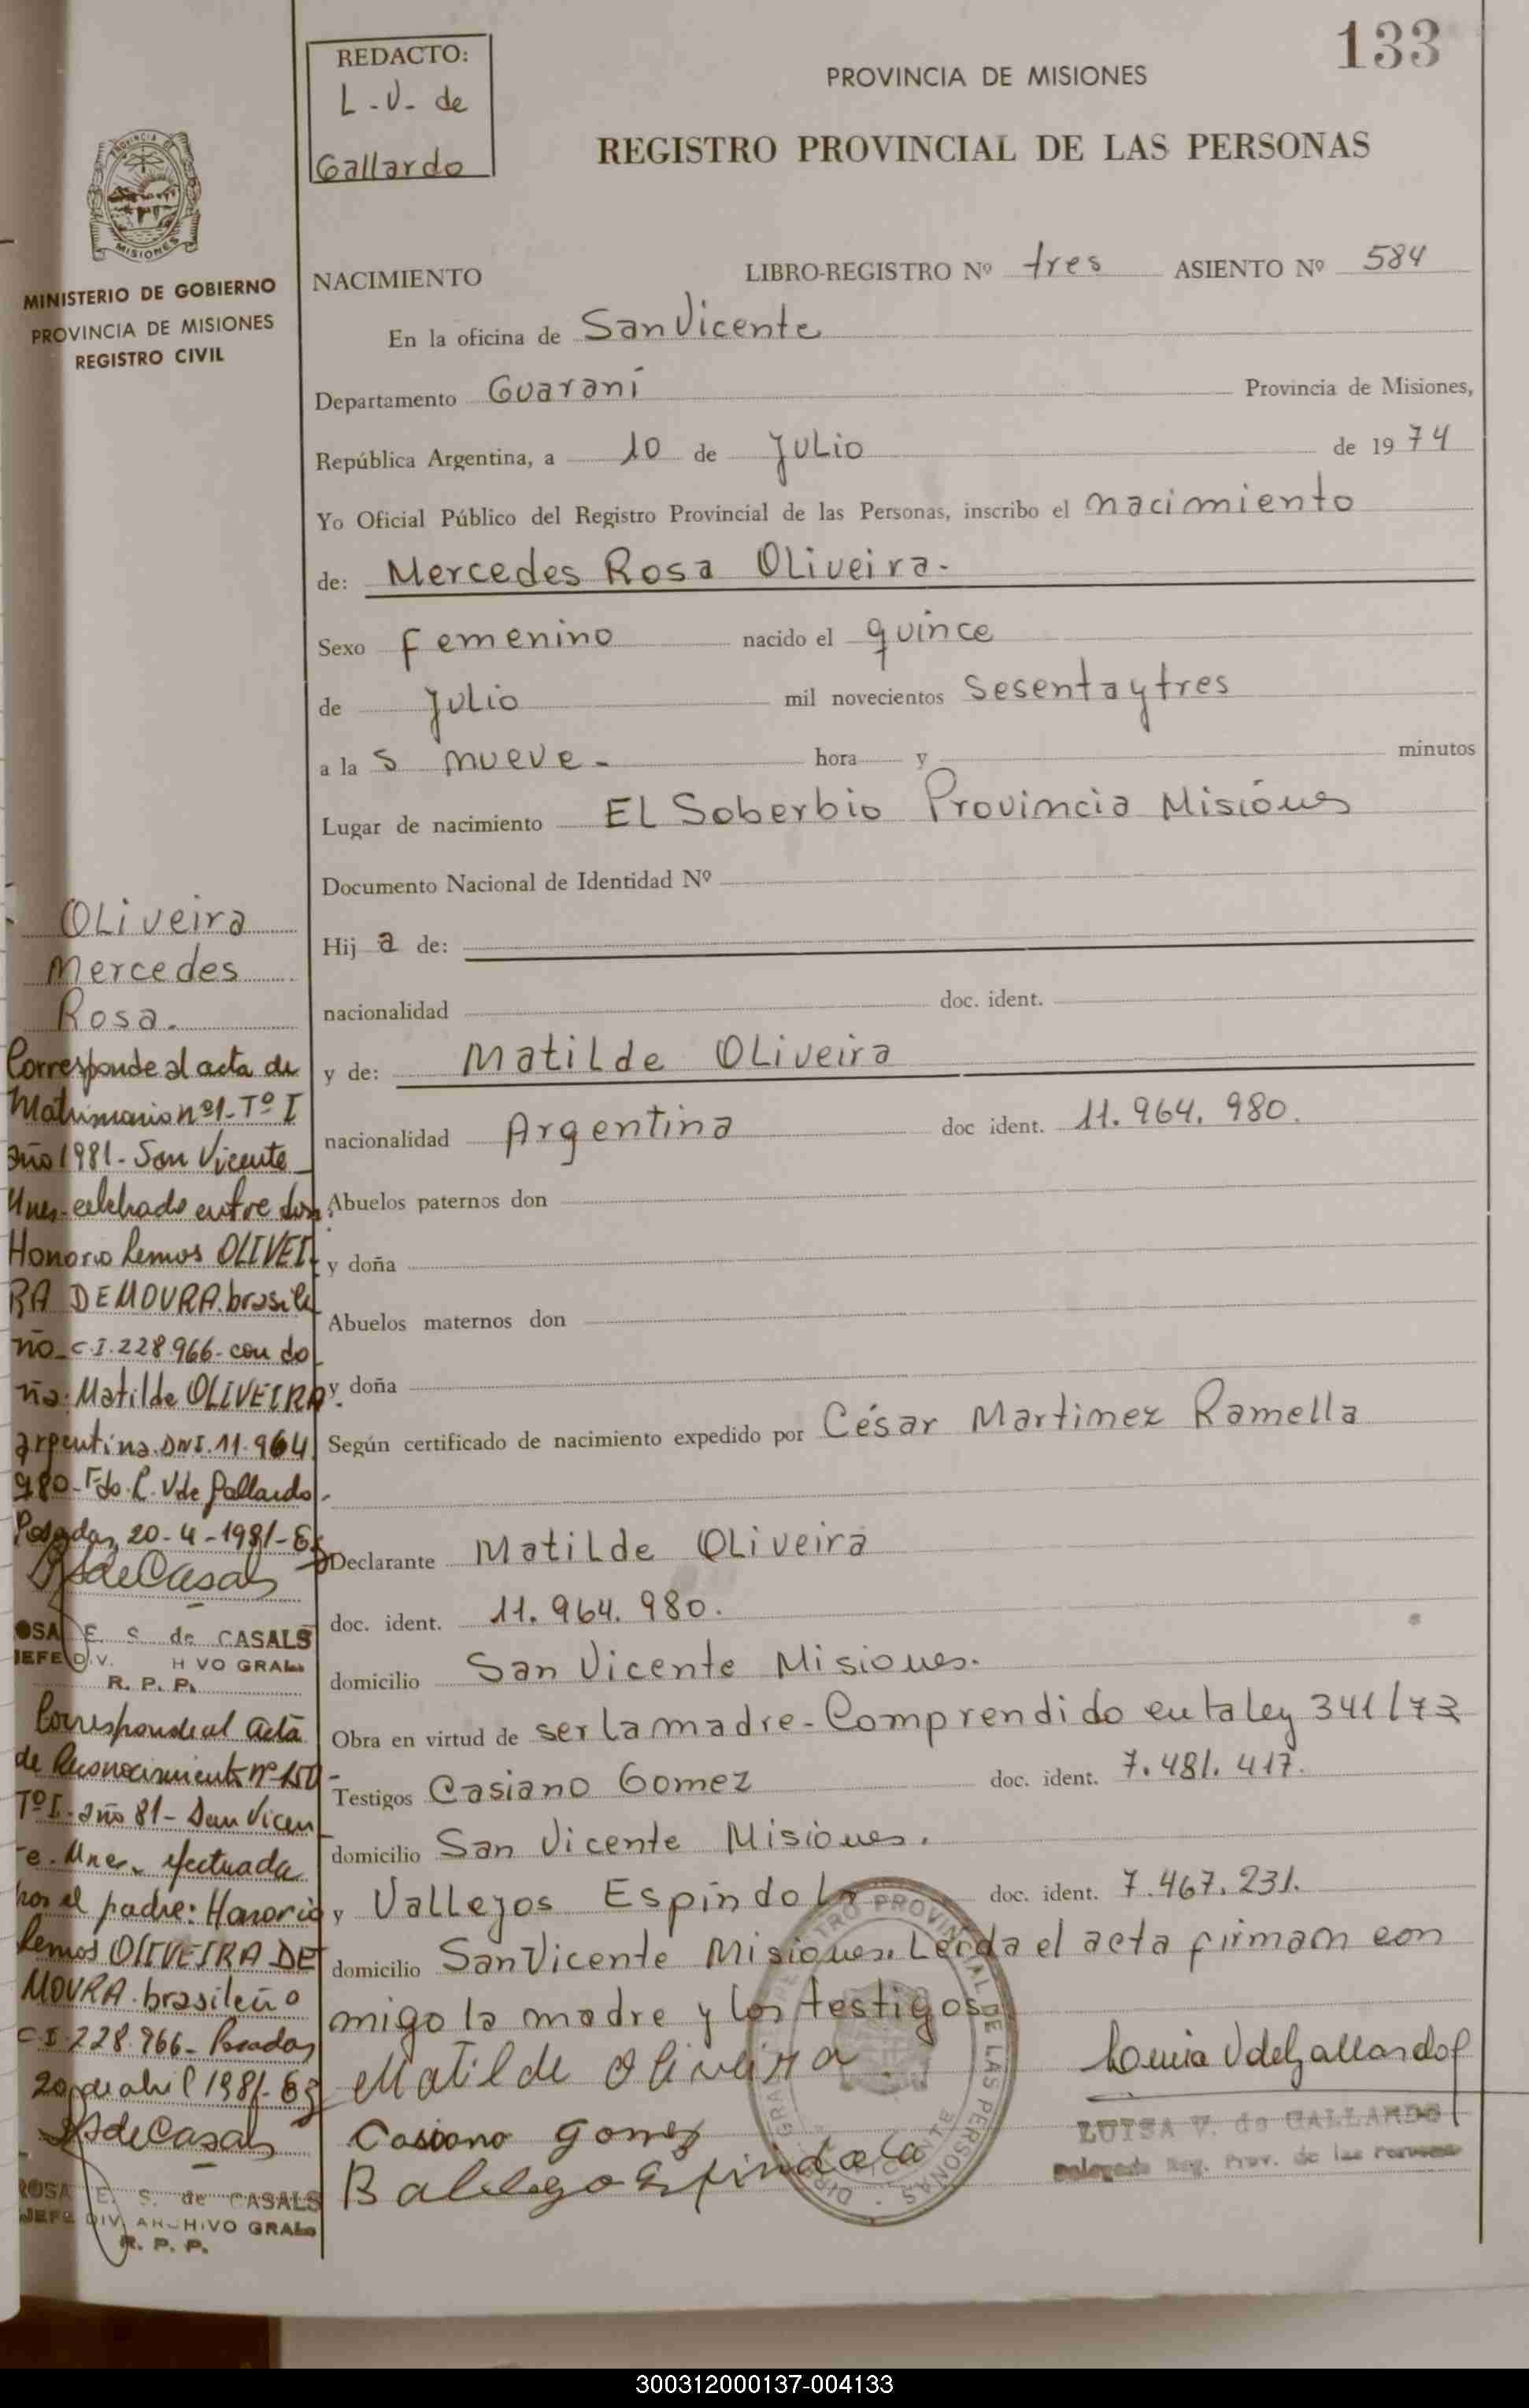 133
REDACTO:
L-V- de
Gallardo
PROVINCIA DE MISIONES
REGISTRO PROVINCIAL DE LAS PERSONAS
PROVINCIA
MISIONES
MINISTERIO DE GOBIERNO
PROVINCIA DE MISIONES
REGISTRO CIVIL
NACIMIENTO LIBRO-REGISTRO Nº tres ASIENTO Nº 584
En la oficina de San Vicente
Departamento Guaraní Provincia de Misiones,
República Argentina, a 10 de Julio de 1974
Yo Oficial Público del Registro Provincial de las Personas, inscribo el nacimiento
de: Mercedes Rosa Oliveira.
Sexo Femenino nacido el quince
de Julio mil novecientos Sesenta y tres
a las nueve - hora y minutos
Lugar de nacimiento El Soberbio Provincia Misiones
Documento Nacional de Identidad Nº
Hija de:
nacionalidad doc. ident.
y de: Matilde Oliveira
nacionalidad Argentina doc ident. 11.964.980.
Abuelos paternos don
y doña
Abuelos maternos don
y doña
Según certificado de nacimiento expedido por César Martinez Ramella
Declarante Matilde Oliveira
doc. ident. 11.964.980.
domicilio San Vicente Misiones.
Obra en virtud de ser la madre - Comprendido en la ley 341/73
Testigos Casiano Gomez doc. ident. 7.481.417.
domicilio San Vicente Misiones.
y Vallejos Espindola doc. ident. 7.467.231.
domicilio San Vicente Misiones. Leida el acta firman con
migo la madre y los testigos
Matilde Oliveira
Casiano Gomez
Espindola
Luisa V de Gallardo
LUISA V. de GALLARDO
Delegada Reg. Prov. de las Personas
Oliveira
Mercedes
Rosa.
Corresponde al acta de
Matrimonio nº1-Tº I
año 1981- San Vicente
Mnes- celebrado entre don:
Honorio Lemos OLIVEI-
RA DE MOURA. brasile
ño C.I. 228.966- con do
ña: Matilde OLIVEIRA.
argentina. DNI. 11.964.
980- Fdo. L. V de Gallardo.
Posadas, 20-4-1981-
SdeCasals
ROSA E. S. de CASALS
JEFE DIV. HIVO GRAL.
R. P. P.
Corresponde al acta
de Reconocimiento nº 150
Tº I. año 81- San Vicen
te. Mnes. efectuada
por el padre: Honorio
Lemos OLIVEIRA DE
MOURA. brasileño
C.I. 228.966- Posadas
20 de abril 1981-
SdeCasals
ROSA E. S. de CASALS
JEFE DIV. ARCHIVO GRAL.
R. P. P.
300312000137-004133